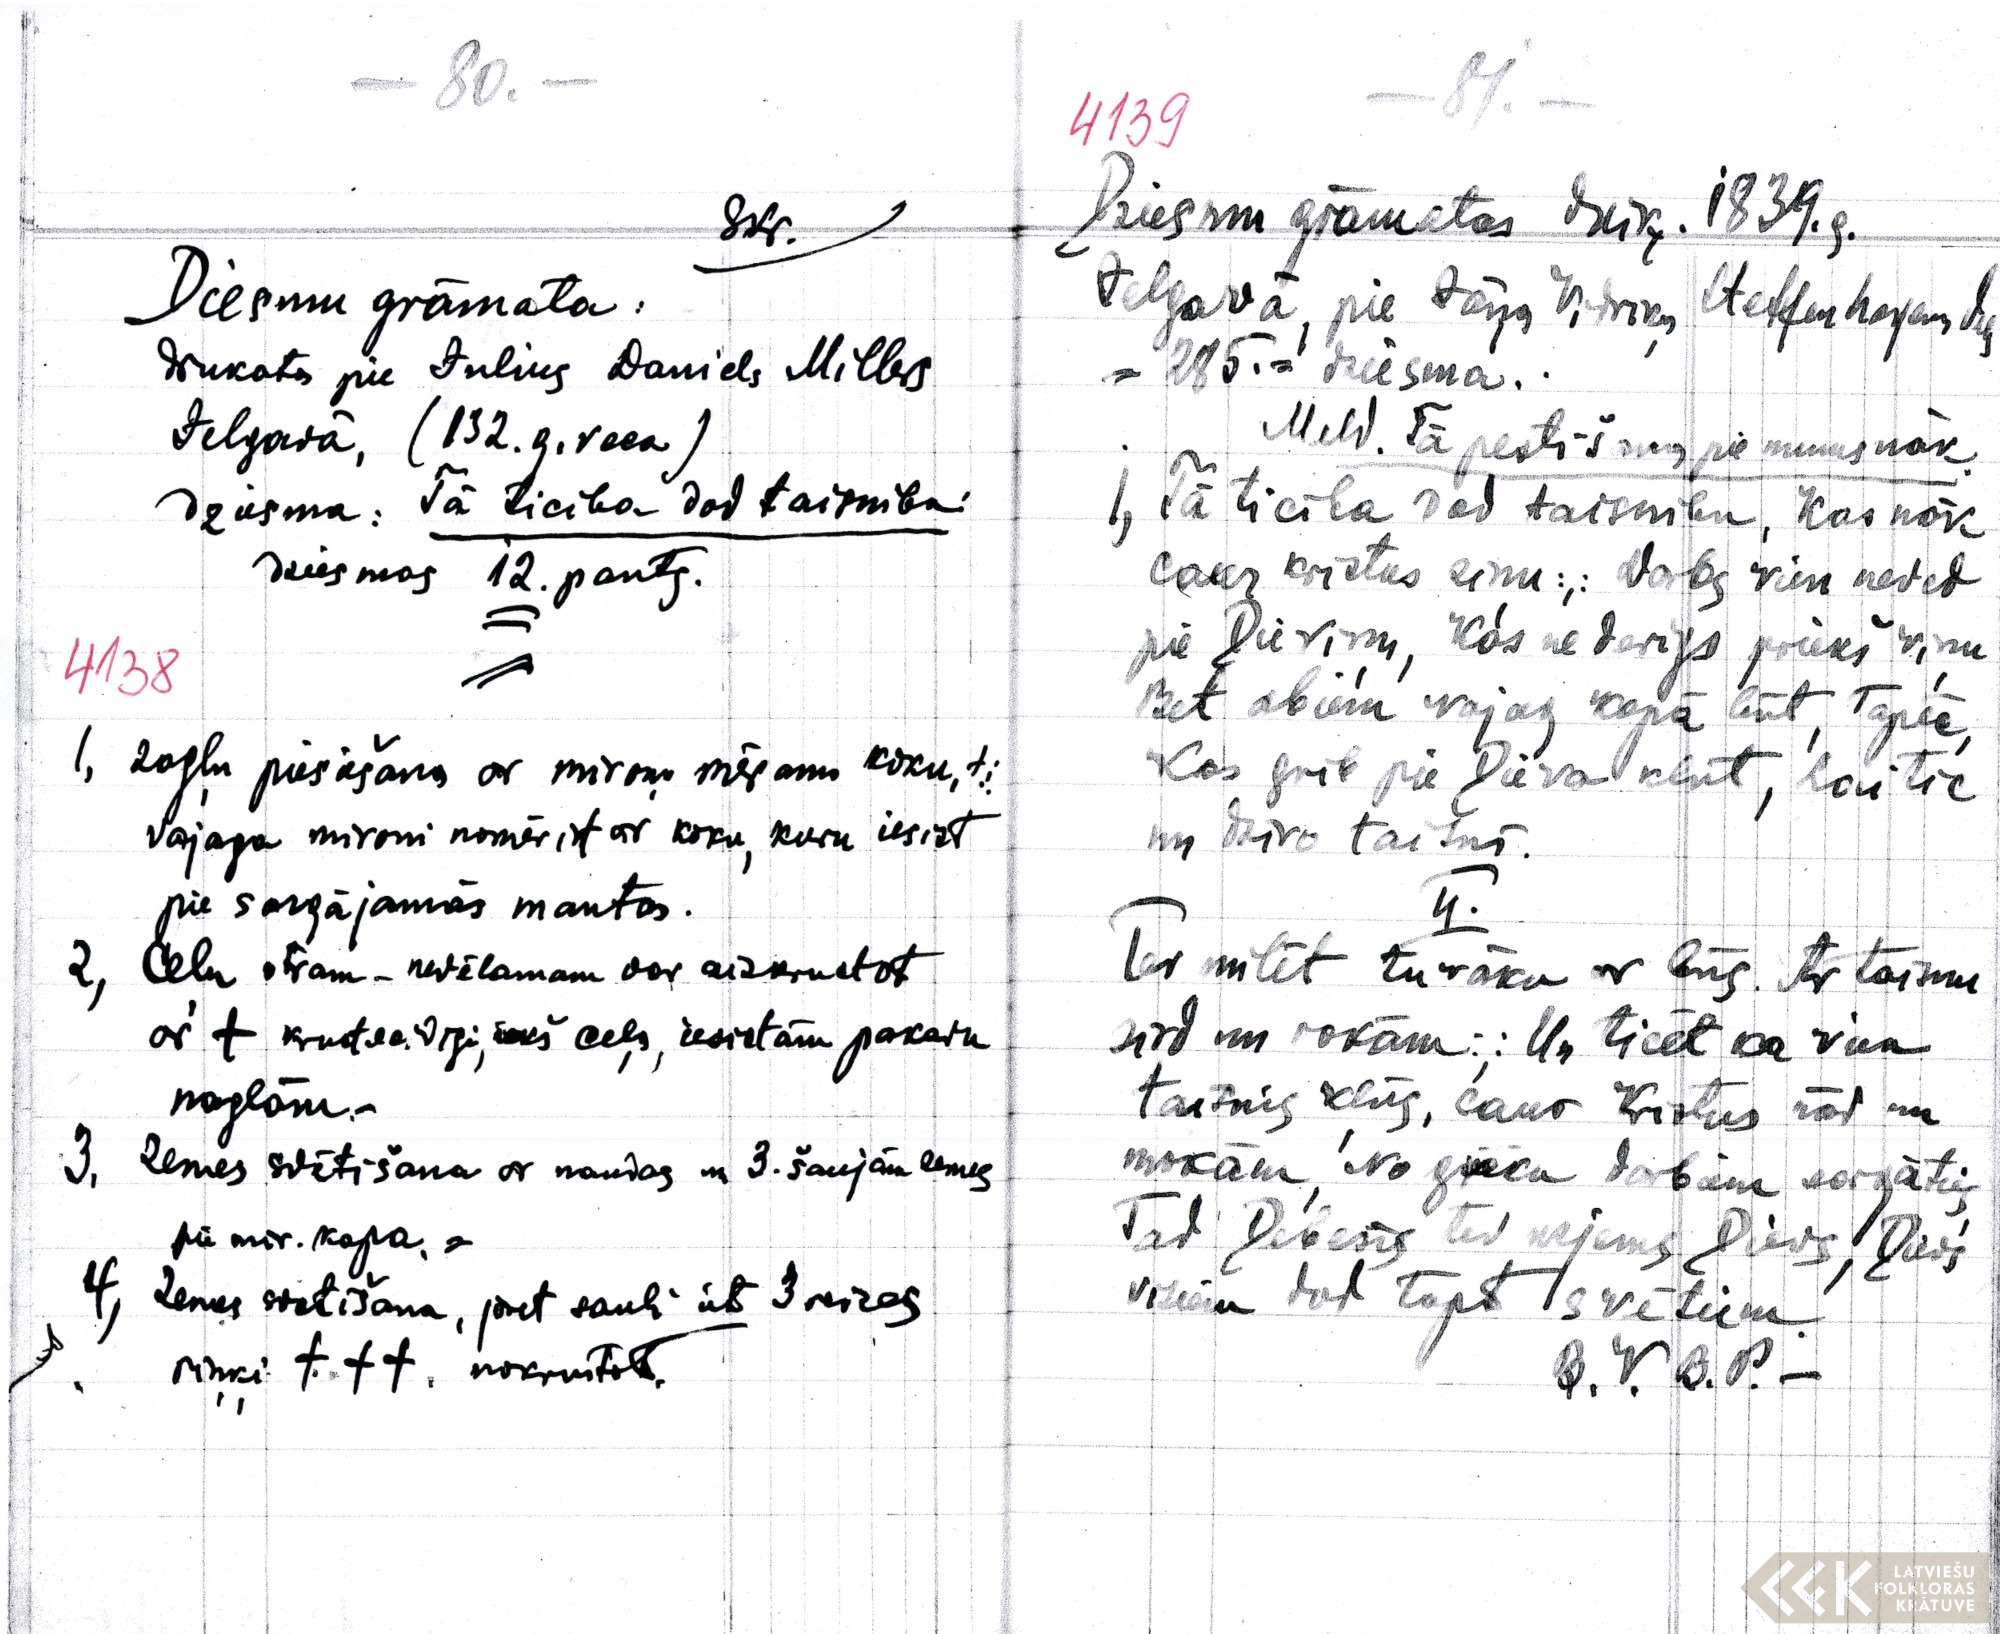 — 80. —
skr.
Dziesmu grāmata:
drukata pie Julius Daniels Millers
Jelgavā, (132. g. veca)
dziesma: Tā ticiba dod taisnibu:
dziesmas 12. pants.
4138
1, zagļu piesiešana ar miroņu mēramo koku, t.i:
vajaga mironi nomērit ar koku, kuru iesist
pie sargājamās mantas.
2, Ceļu otram – nevēlamam var aizkrustot
ar + krusteidigi, ceļa, iesistām pakavu
naglām.–
3, Zemes svētišana ar naudas un 3. saujām zemes
pie mir. kapa. =
4, Zemes svētišana, pret sauli iet 3 reizas
riņķi +.++. nokrustot.
— 81. —
4139
Dziesmu grāmatas driķ. 1839. g.
Jelgavā, pie Jāņa Vidriķa Steffenhagena
= 285. = dziesma.
Meld. Tā pestišana pie mums nāk.
1, Tā ticiba dod taisnibu, Kas nāk
caur kristus ziņu:,: Darbs vien neved
pie Dieviņu, Kas nederigs priekš viņu
Bet abiem vajag kopā būt, Tapēc,
Kas grib pie Dieva kļūt, Lai tic
un dzivo taisni.
II.
Tev milēt tuvāku ar būs. Ar taisnu
sird un rokām:,: Un ticēt ka vien
taisnis kļūs, caur Kristus nād un
mokām, No grēku darbiem sargāties
Tad Debesis tev ņems Dievs, Dievs
visiem dod tapt svētiem.
B. V. B. P. –
LATVIEŠU
FOLKLORAS
KRĀTUVE